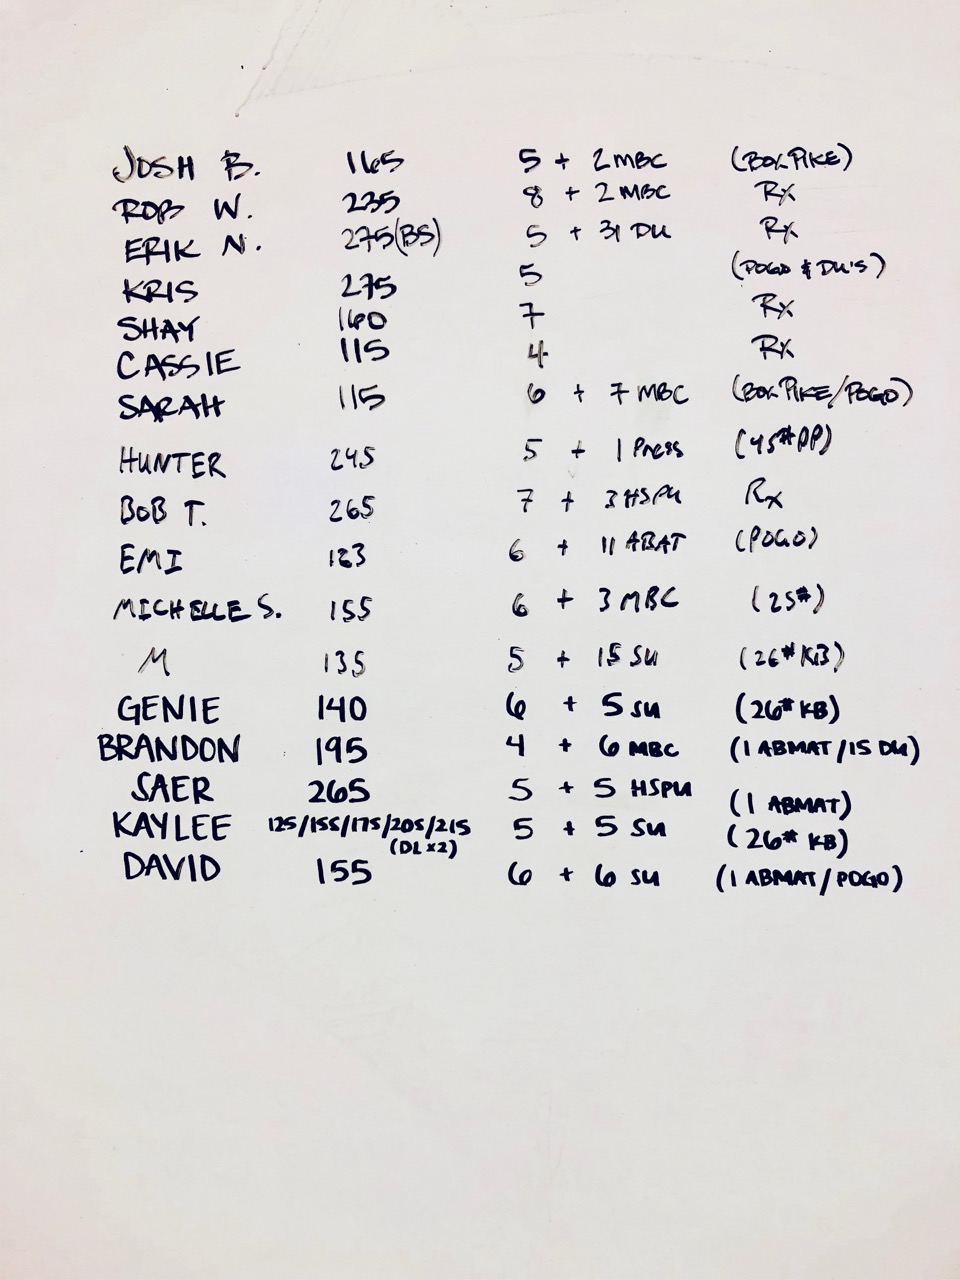 JOSH B. 165 5 + 2 MBC (BOX PIKE)
ROB W. 235 8 + 2 MBC Rx
ERIK N. 275(BS) 5 + 31 DU Rx
KRIS 275 5 (POGO & DU'S)
SHAY 160 7 Rx
CASSIE 115 4 Rx
SARAH 115 6 + 7 MBC (BOX PIKE/POGO)
HUNTER 245 5 + 1 PRESS (45# DP)
BOB T. 265 7 + 3 HSPU Rx
EMI 123 6 + 11 ABAT (POGO)
MICHELLE S. 155 6 + 3 MBC (25#)
M 135 5 + 15 SU (26# KB)
GENIE 140 6 + 5 SU (26# KB)
BRANDON 195 4 + 6 MBC (1 ABMAT/15 DU)
SAER 265 5 + 5 HSPU (1 ABMAT)
KAYLEE 125/155/175/205/215 5 + 5 SU (26# KB)
(DL x2)
DAVID 155 6 + 6 SU (1 ABMAT/POGO)